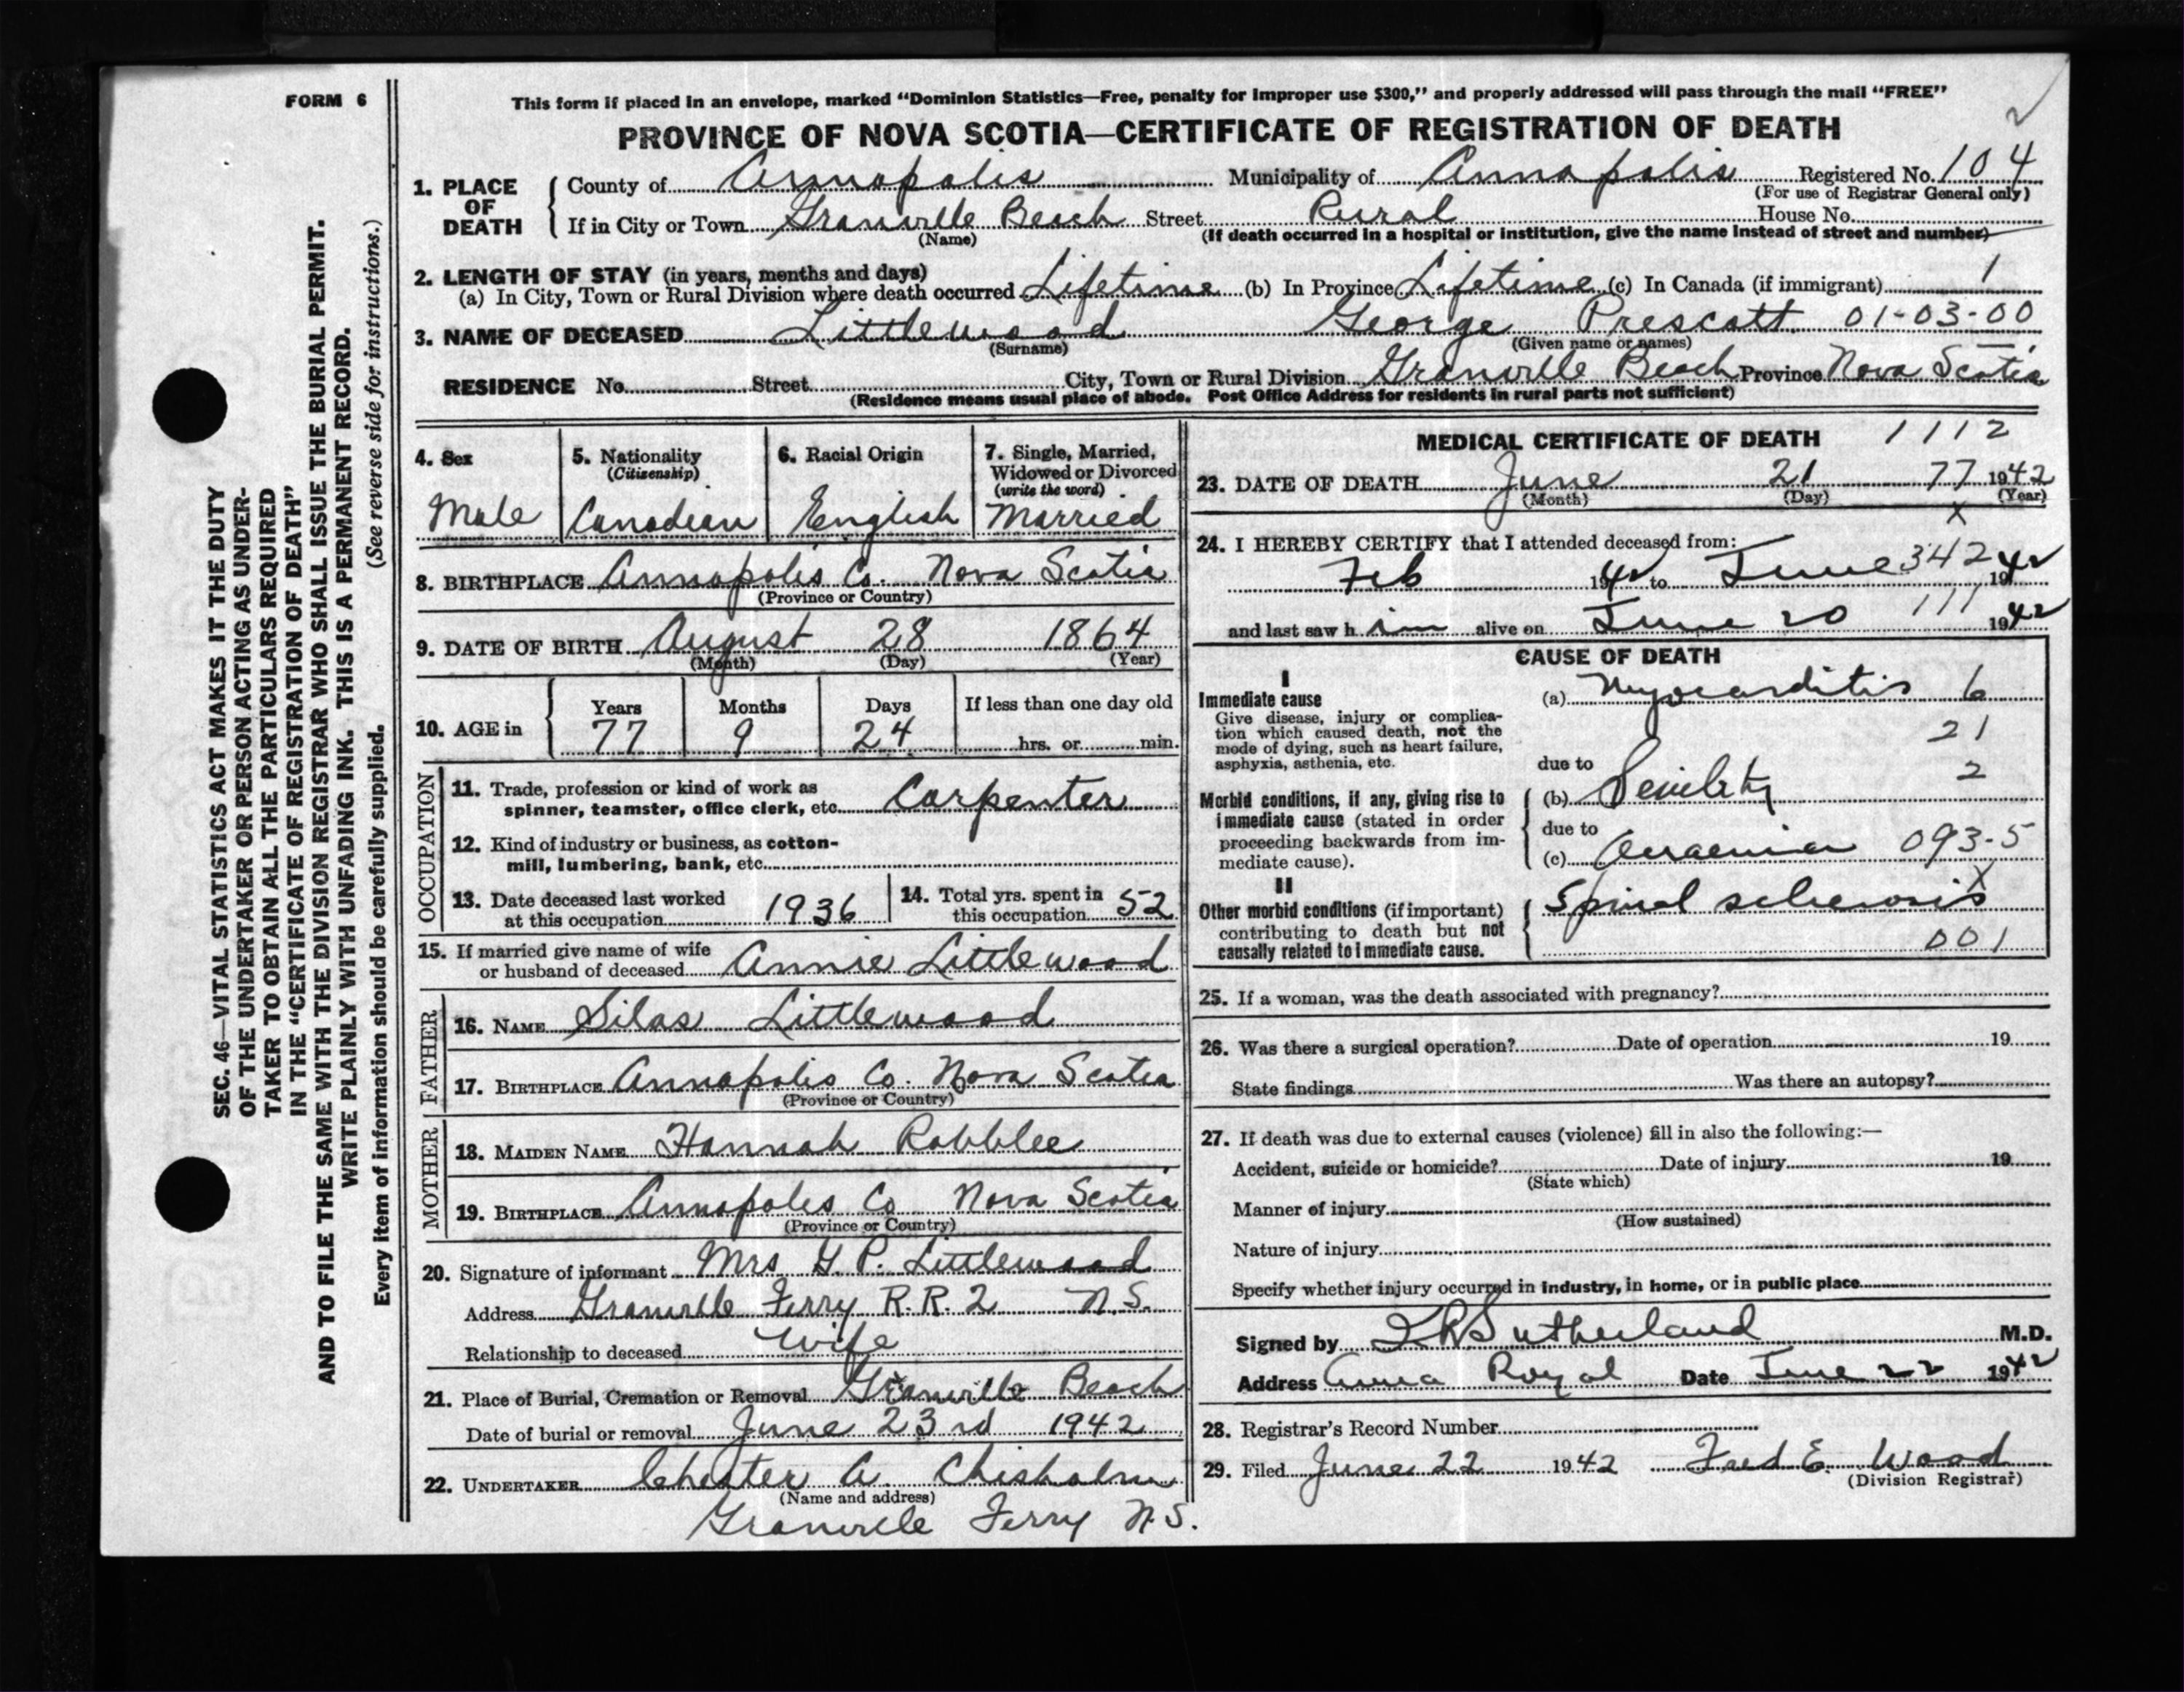 FORM 6
This form if placed in an envelope, marked “Dominion Statistics—Free, penalty for improper use $300,” and properly addressed will pass through the mail “FREE”
PROVINCE OF NOVA SCOTIA—CERTIFICATE OF REGISTRATION OF DEATH
1. PLACE OF DEATH County of Annapolis Municipality of Annapolis Registered No. 104
(For use of Registrar General only)
If in City or Town Granville Beach Street Rural House No.
(Name) (If death occurred in a hospital or institution, give the name instead of street and number)
2. LENGTH OF STAY (in years, months and days)
(a) In City, Town or Rural Division where death occurred Lifetime (b) In Province Lifetime (c) In Canada (if immigrant) 1
3. NAME OF DECEASED Littlewood George Prescott 01-03-00
(Surname) (Given name or names)
RESIDENCE No. Street City, Town or Rural Division Granville Beach Province Nova Scotia
(Residence means usual place of abode. Post Office Address for residents in rural parts not sufficient)
4. Sex
Male
5. Nationality
(Citizenship)
Canadian
6. Racial Origin
English
7. Single, Married,
Widowed or Divorced
(write the word)
Married
8. BIRTHPLACE Annapolis Co. Nova Scotia
(Province or Country)
9. DATE OF BIRTH August 28 1864
(Month) (Day) (Year)
10. AGE in Years Months Days If less than one day old
77 9 24 hrs. or min.
OCCUPATION
11. Trade, profession or kind of work as
spinner, teamster, office clerk, etc. Carpenter
12. Kind of industry or business, as cotton-
mill, lumbering, bank, etc.
13. Date deceased last worked
at this occupation 1936
14. Total yrs. spent in
this occupation 52
15. If married give name of wife
or husband of deceased Annie Littlewood
FATHER
16. NAME Silas Littlewood
17. BIRTHPLACE Annapolis Co. Nova Scotia
(Province or Country)
MOTHER
18. MAIDEN NAME Hannah Robblee
19. BIRTHPLACE Annapolis Co Nova Scotia
(Province or Country)
20. Signature of informant Mrs G. P. Littlewood
Address Granville Ferry R.R. 2 N.S.
Relationship to deceased wife
21. Place of Burial, Cremation or Removal Granville Beach
Date of burial or removal June 23rd 1942
22. UNDERTAKER Chester A. Chisholm
(Name and address)
Granville Ferry N.S.
MEDICAL CERTIFICATE OF DEATH 1112
23. DATE OF DEATH June 21 77 1942
(Month) (Day) (Year)
x
24. I HEREBY CERTIFY that I attended deceased from:
Feb 1942 to June 342 1942
and last saw him alive on June 20 111 1942
CAUSE OF DEATH
I
Immediate cause (a) Myocarditis 6
Give disease, injury or complica-
tion which caused death, not the
mode of dying, such as heart failure,
asphyxia, asthenia, etc.
21
due to
2
Morbid conditions, if any, giving rise to
immediate cause (stated in order
proceeding backwards from im-
mediate cause).
(b) Senility
due to
(c) Anaemia 093-5
x
II
Other morbid conditions (if important)
contributing to death but not
causally related to immediate cause.
Spinal sclerosis
001
25. If a woman, was the death associated with pregnancy?
26. Was there a surgical operation? Date of operation 19
State findings Was there an autopsy?
27. If death was due to external causes (violence) fill in also the following:—
Accident, suicide or homicide? Date of injury 19
(State which)
Manner of injury
(How sustained)
Nature of injury
Specify whether injury occurred in industry, in home, or in public place
Signed by Sutherland M.D.
Address Anna Royal Date June 22 1942
28. Registrar’s Record Number
29. Filed June 22 1942 Fred E. Wood
(Division Registrar)
SEC. 46—VITAL STATISTICS ACT MAKES IT THE DUTY
OF THE UNDERTAKER OR PERSON ACTING AS UNDER-
TAKER TO OBTAIN ALL THE PARTICULARS REQUIRED
IN THE “CERTIFICATE OF REGISTRATION OF DEATH”
AND TO FILE THE SAME WITH THE DIVISION REGISTRAR WHO SHALL ISSUE THE BURIAL PERMIT.
WRITE PLAINLY WITH UNFADING INK. THIS IS A PERMANENT RECORD.
(See reverse side for instructions.)
Every item of information should be carefully supplied.